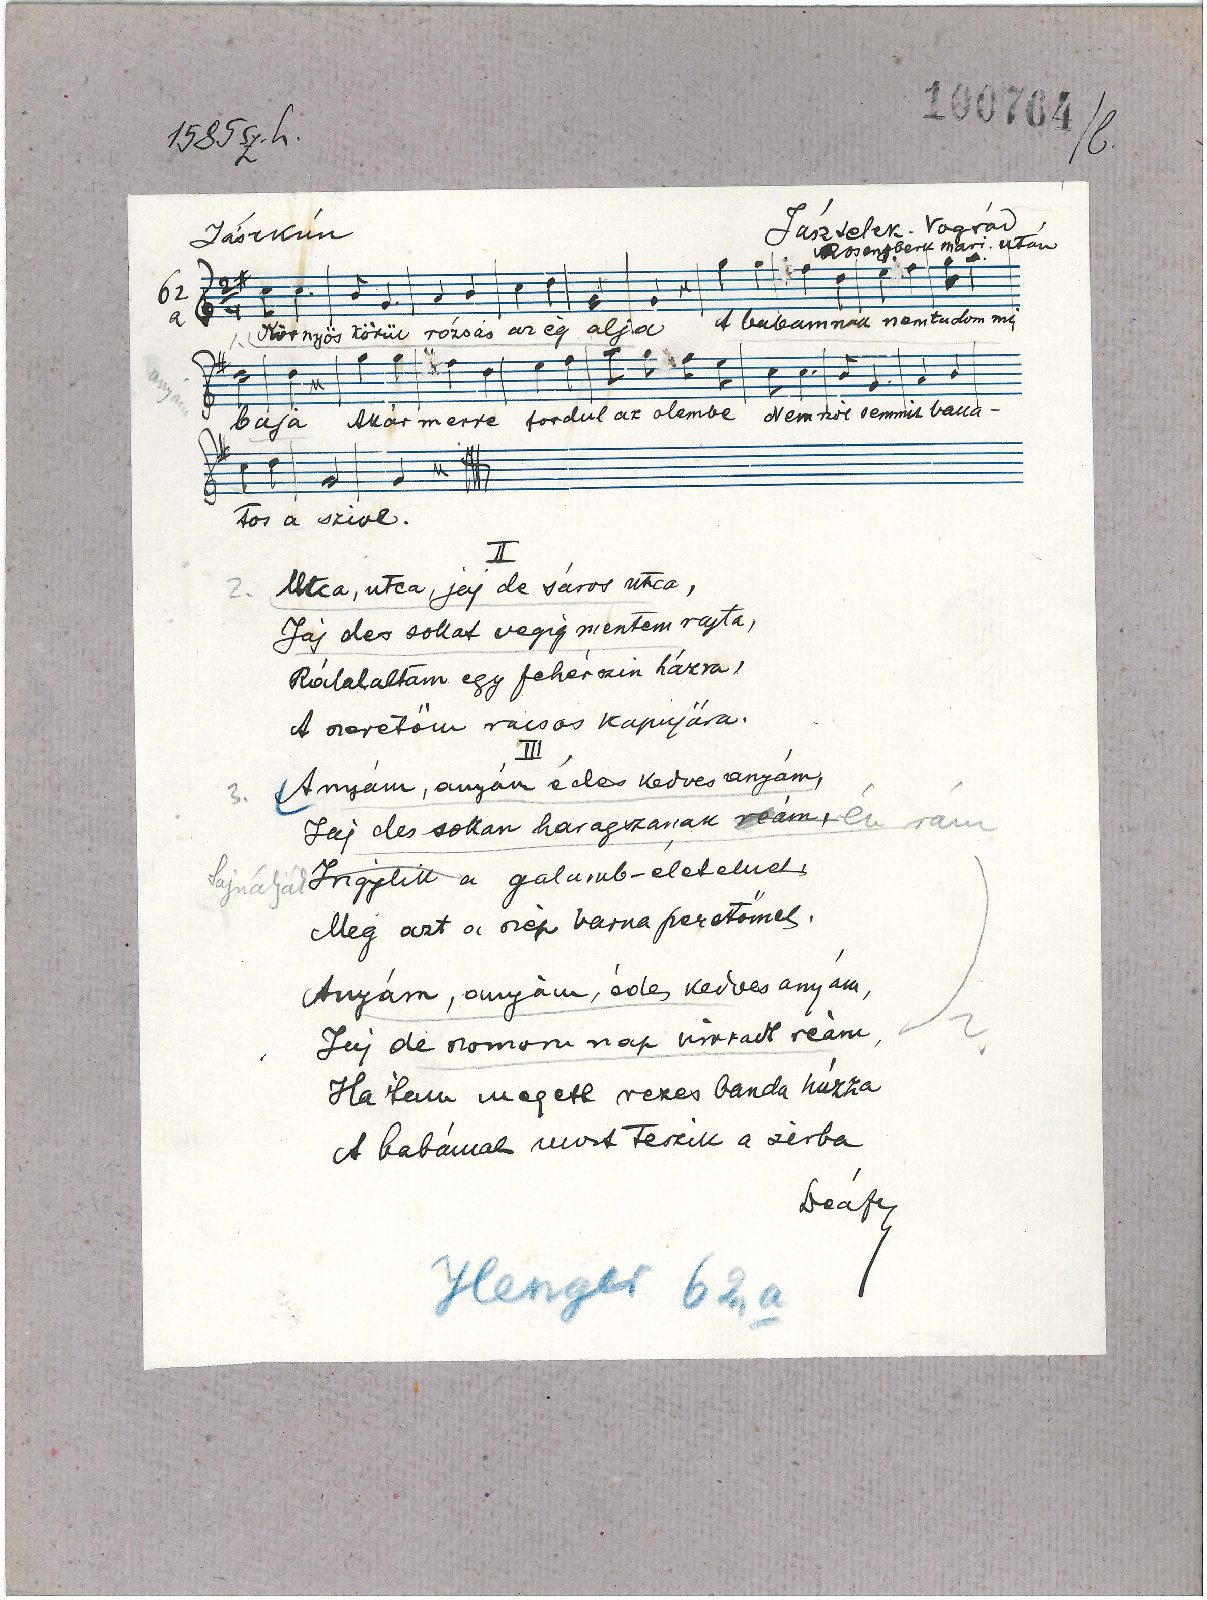 100764/b.
1585 sz. h.
Jászkún
Jásztelek. Nográd
Rosenberk mari. után
62
a
1. Környös körül rózsás az ég alja A babámnak nemtudom mi
anyám
baja Akármerre fordul az ölembe Nem köl semmit balla-
tos a szive.
II
2. Utca, utca, jaj de sáros utca,
Jaj des sokat vegig mentem rajta,
Rátalaltam egy fehérszin házra,
A szeretöm racsos kapujára.
III
3. Anyám, anyám édes kedves anyám,
Jaj des sokan haragszanak reám, én rám
Sajnálják Irigylik a galamb-életemet,
Meg azt a szép barna szeretömet.
Anyám, anyám, édes kedves anyám,
Jaj de szomoru nap virradt reám,
?
Ha tem megett rezes banda húzza
A babámat most teszik a sirba
Deáky
Henger 62, a